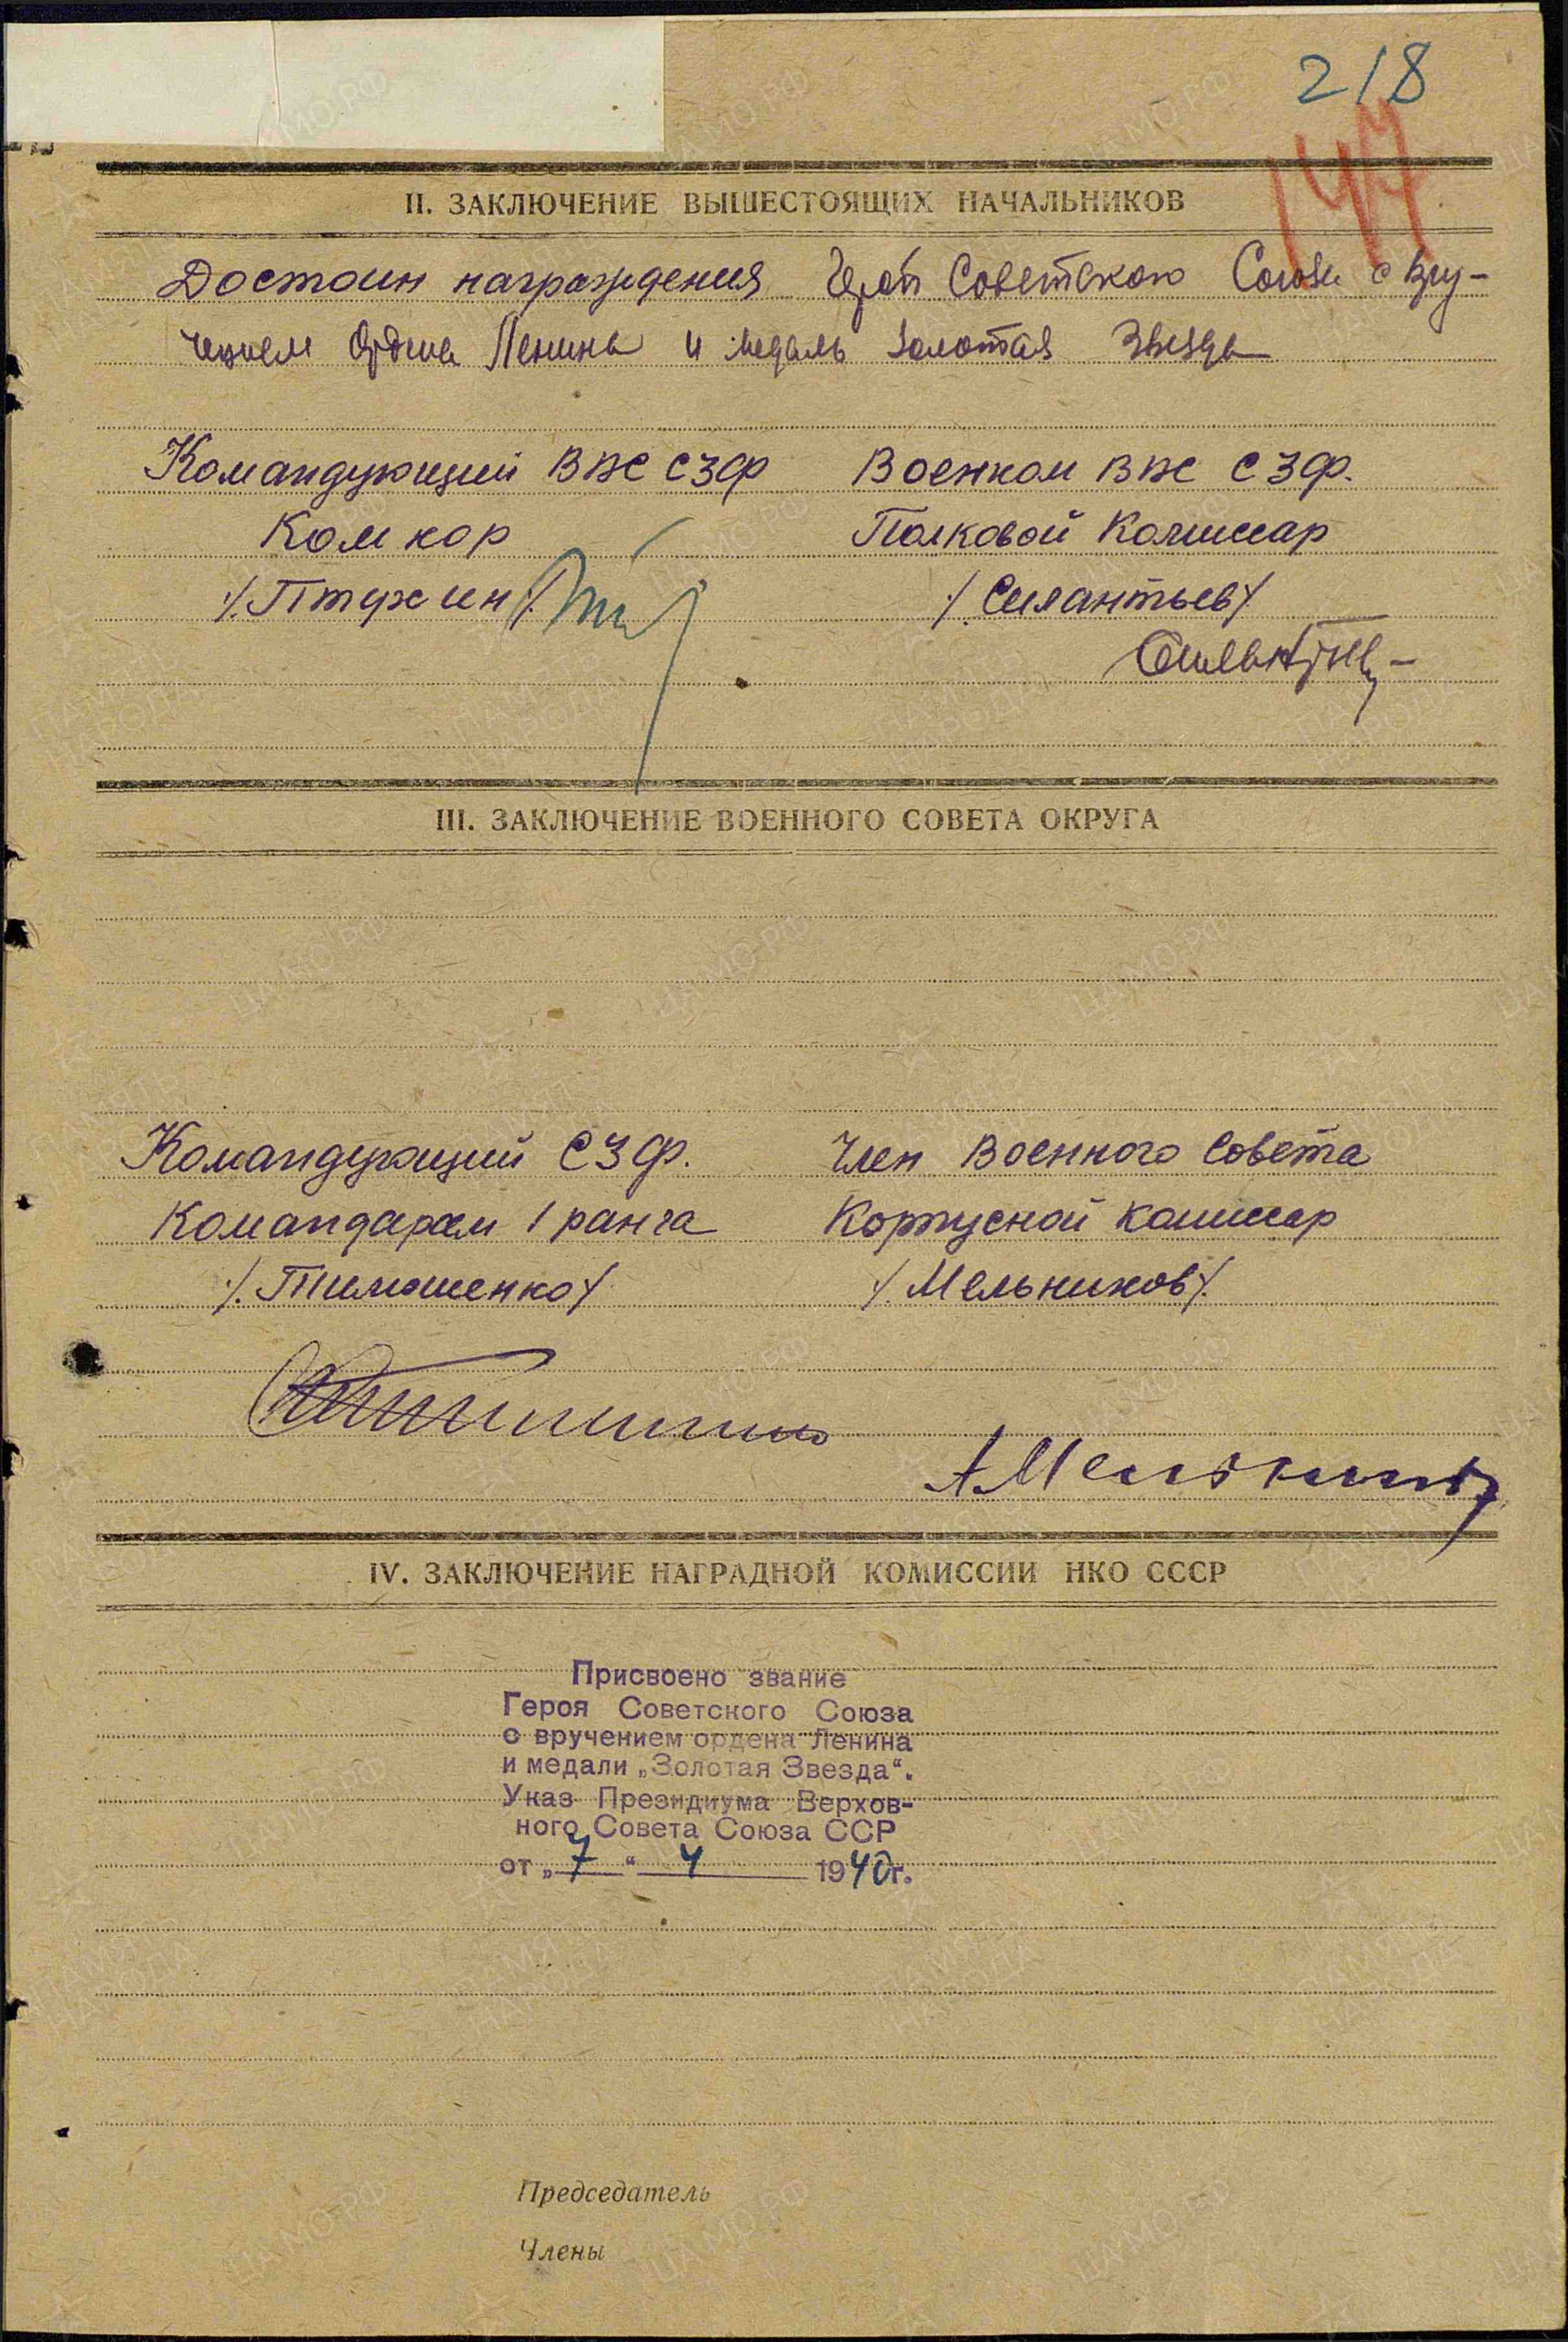 218
147
II. ЗАКЛЮЧЕНИЕ ВЫШЕСТОЯЩИХ НАЧАЛЬНИКОВ
Достоин награждения Герой Советского Союза с вру-
чением Ордена Ленина и медаль Золотая Звезда
Командующий ВВС СЗФ Военком ВВС СЗФ.
Комкор Полковой Комиссар
/.Птухин/. /.Силантьев/.
III. ЗАКЛЮЧЕНИЕ ВОЕННОГО СОВЕТА ОКРУГА
Командующий СЗФ. Член Военного Совета
Командарм 1 ранга Корпусной комиссар
/.Тимошенко/ /.Мельников/.
А.Мельников
IV. ЗАКЛЮЧЕНИЕ НАГРАДНОЙ КОМИССИИ НКО СССР
Присвоено звание
Героя Советского Союза
с вручением ордена Ленина
и медали „Золотая Звезда“.
Указ Президиума Верхов-
ного Совета Союза ССР
от „7“ 4 1940г.
Председатель
Члены